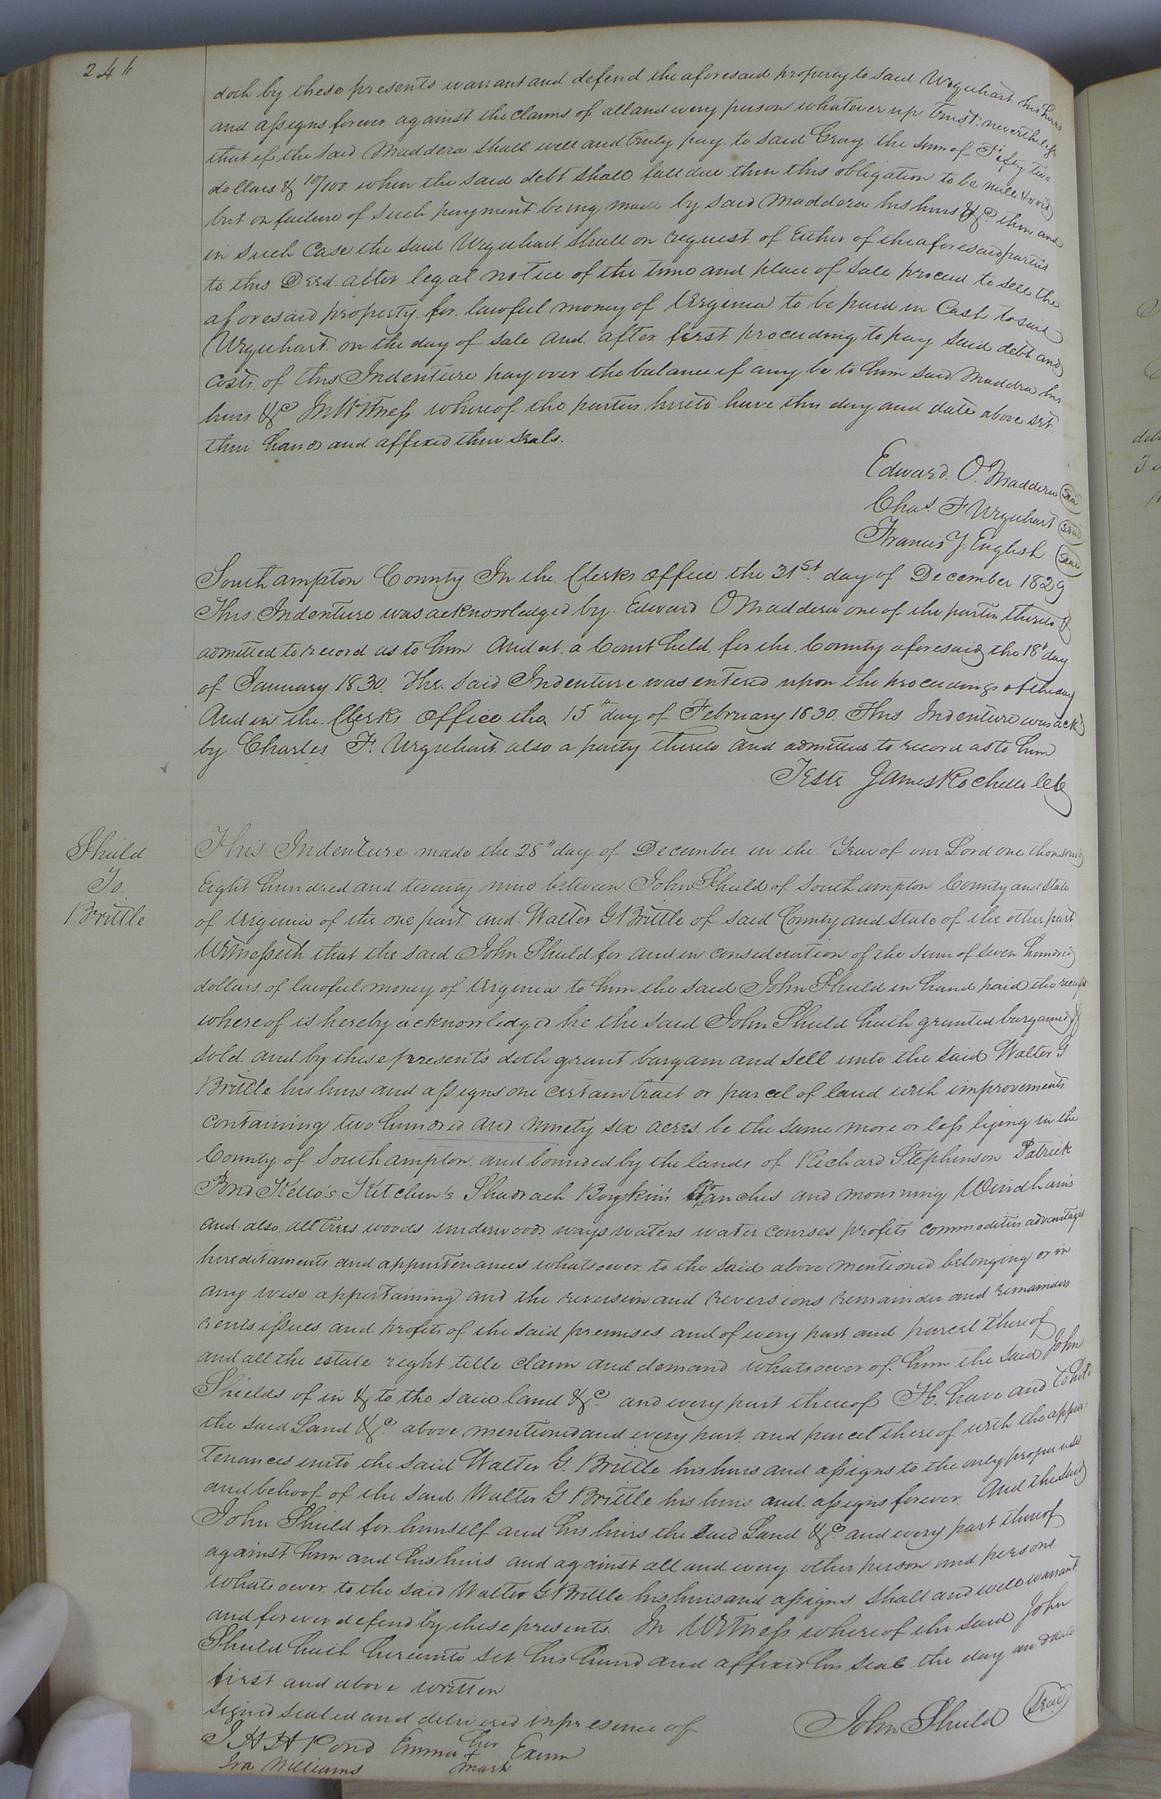 doth by these presents warrant and defend the aforesaid property to said Urquhart his heirs
and assigns forever against the claims of all and every person whatever up trust nevertheless
that if the said Maddera shall well and truly pay to said Gray the sum of Fifty two
dollars & 10/100 when the said debt shall fall due then this obligation to be null & void
but on failure of such payment being made by said Maddera his heirs &c then and
in such case the said Urquhart shall on request of Either of the aforesaid parties
to this Deed after legal notice of the time and place of sale proceed to sell the
aforesaid property for lawful money of Virginia to be paid in Cash to said
Urquhart on the day of sale and after first proceeding to pay said debt and
costs of this Indenture pay over the balance if any be to him said Maddera his
heirs &c In Witness whereof the parties hereto have this day and date above set
their hands and affixed their seals.
Edward O. Maddera Seal
Chas F Urquhart Seal
Francis J English Seal
Southampton County In the Clerks office the 31st day of December 1829
This Indenture was acknowledged by Edward O Maddera one of the parties thereto &
admitted to record as to him And at a Court held for the County aforesaid the 18th day
of January 1830. The said Indenture was entered upon the proceedings of the day
And in the Clerk's office the 15th day of February 1830. This Indenture was ackd
by Charles F. Urquhart also a party thereto and admitted to record as to him
Teste James Rochelle Clk
Shield
To
Brittle
This Indenture made the 28th day of December in the Year of our Lord one thousand
Eight hundred and twenty nine between John Shield of Southampton County and State
of Virginia of the one part and Walter G Brittle of said County and State of the other part
Witnesseth that the said John Shield for and in consideration of the sum of seven hundred
dollars of lawful money of Virginia to him the said John Shield in hand paid the receipt
whereof is hereby acknowledged he the said John Shield hath granted bargained &
sold and by these presents doth grant bargain and sell unto the said Walter G
Brittle his heirs and assigns one certain tract or parcel of land with improvements
containing two hundred and ninety six acres be the same more or less lying in the
County of Southampton and bounded by the lands of Richard Stephenson Patrick
Pond Kello's Kitchen's Shadrach Boykin's and mourning Windham's
and also all trees woods underwoods ways waters water courses profits commodities advantages
hereditaments and appurtenances whatsoever to the said above mentioned belonging or in
any wise appertaining and the reversion and reversions remainder and remainders
rents issues and profits of the said premises and of every part and parcel thereof
and all the estate right title claim and demand whatsoever of him the said John
Shields of in & to the said land &c and every part thereof To have and to hold
the said Land &c above mentioned and every part and parcel thereof with the appur-
tenances unto the said Walter G. Brittle his heirs and assigns to the only proper use
and behoof of the said Walter G Brittle his heirs and assigns forever. And the said
John Shield for himself and his heirs the said Land &c and every part thereof
against him and his heirs and against all and every other person and persons
whatsoever to the said Walter G Brittle his heirs and assigns shall and will warrant
and forever defend by these presents. In Witness whereof the said John
Shield hath hereunto set his hand and affixed his seal the day and date
first and above written
signed sealed and delivered in presence of John Shield Seal
J H H Pond Emma her Exum
Ira Williams + mark